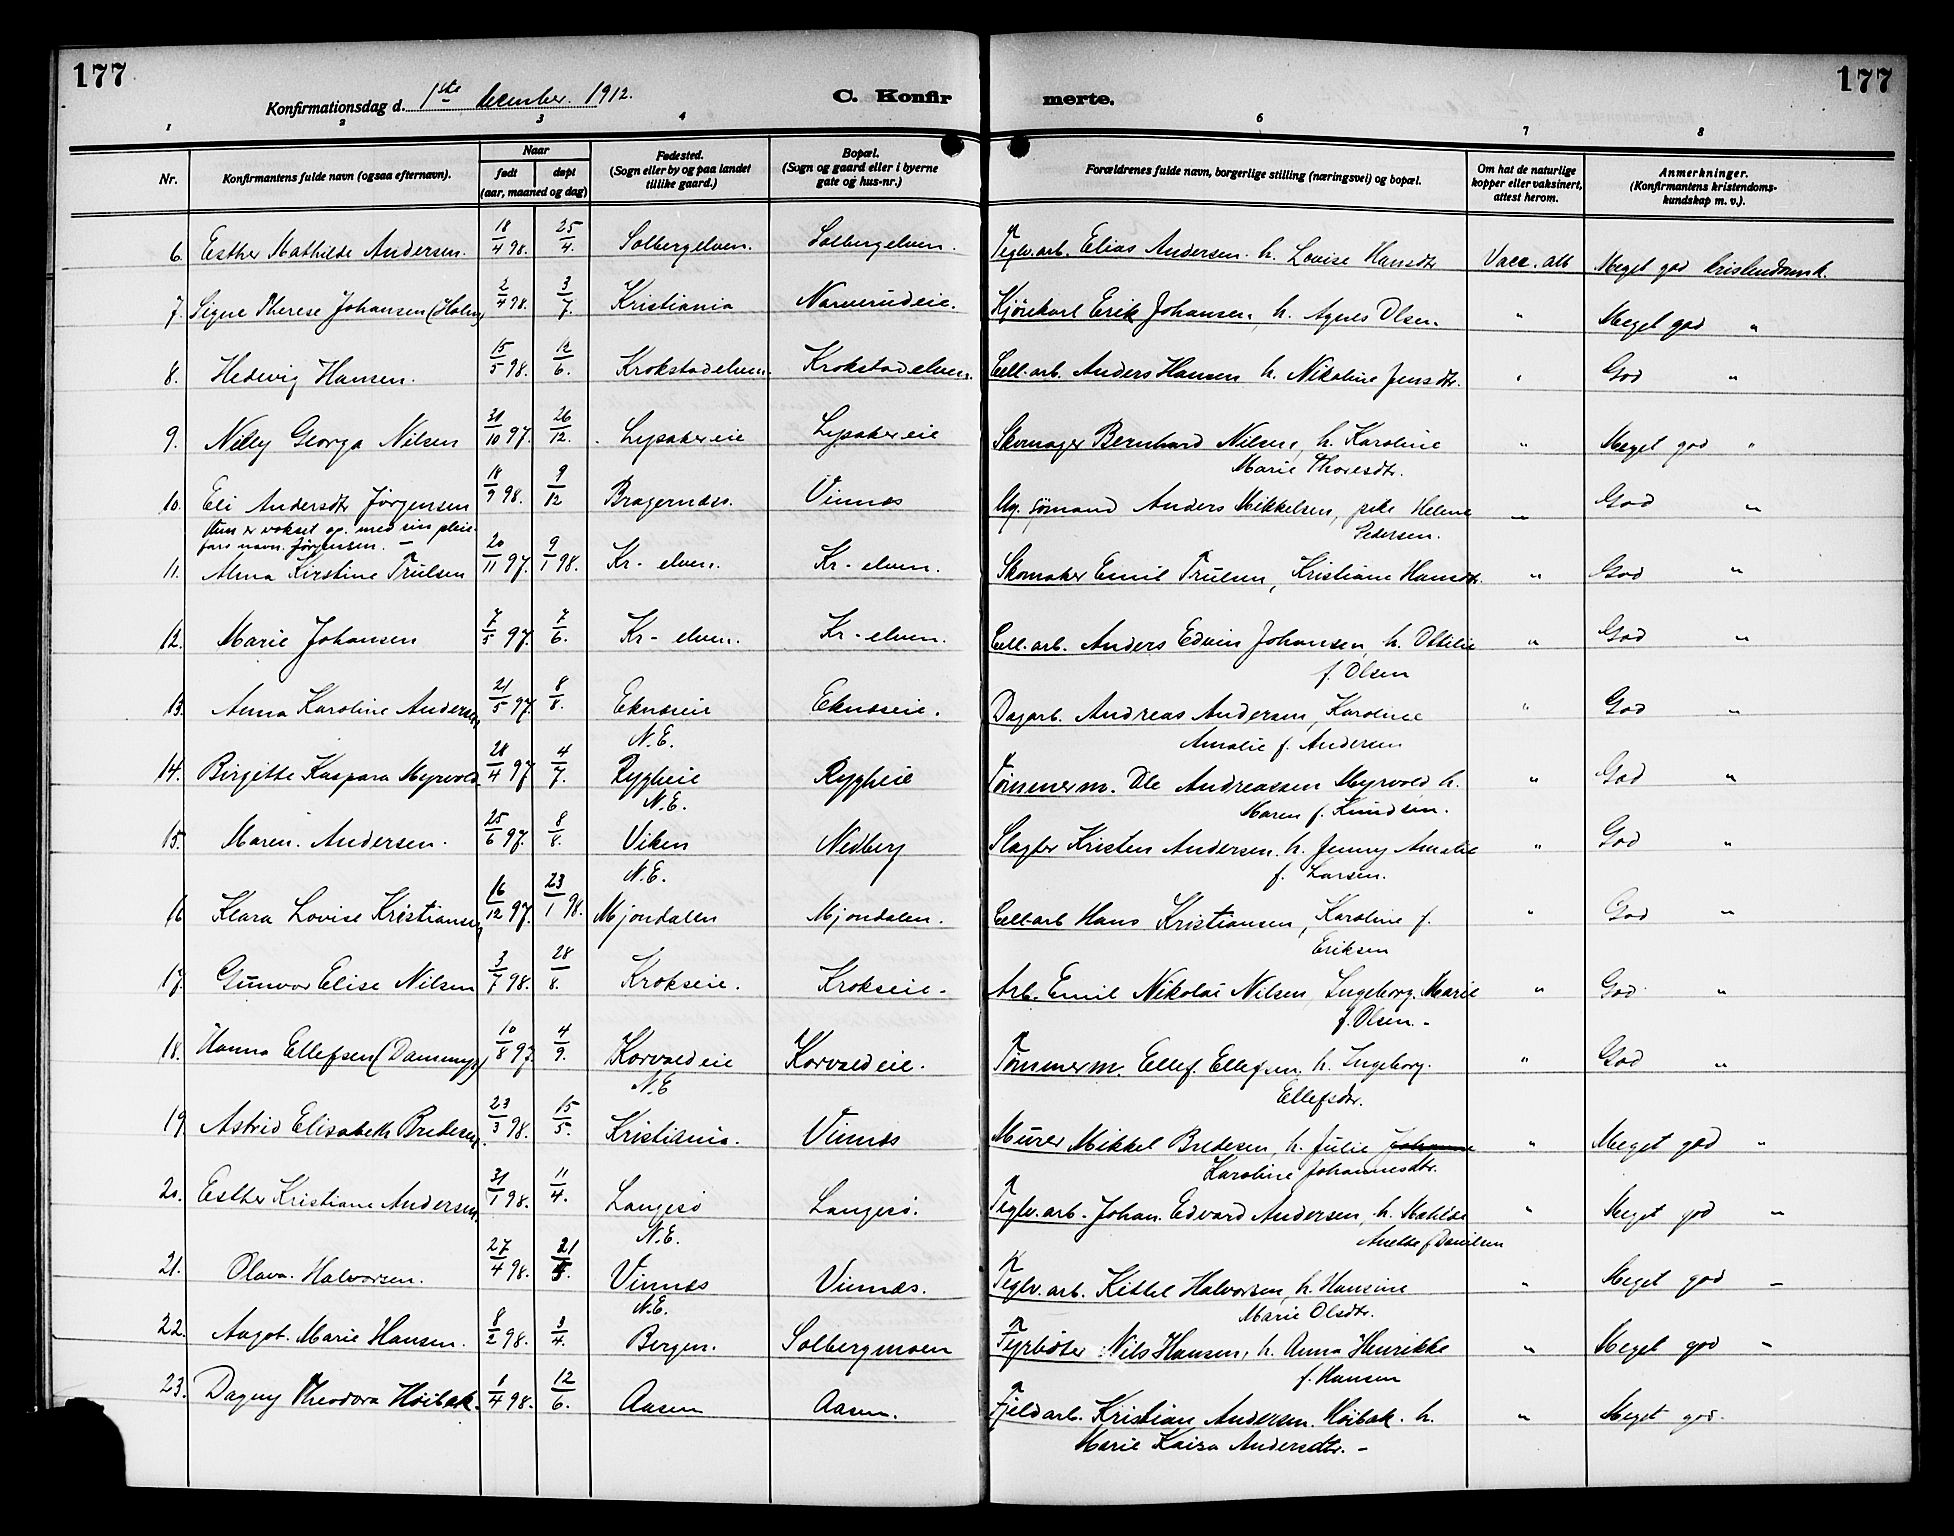 177
177
Konfirmationsdag d. 1ste december 1912.
C. Konfir
merte.
1 2 3 4 5 6 7 8
Nr. Konfirmantens fulde navn (ogsaa efternavn). Naar født døpt (aar, maaned og dag) Fødested. (Sogn eller by og paa landet tillike gaard.) Bopæl. (Sogn og gaard eller i byerne gate og hus-nr.) Forældrenes fulde navn, borgerlige stilling (næringsvei) og bopæl. Om hat de naturlige kopper eller vaksinert, attest herom. Anmerkninger. (Konfirmantens kristendoms-kundskap m. v.).
6. Esther Mathilde Andersen. 18/4 98. 25/4. Solbergelven. Solbergelven. Teglv.arb. Elias Andersen. h. Lovise Hansdtr Vacc. att Meget god kristendomsk.
7. Signe Therese Johansen (Holm) 2/4 98. 3/7. Kristiania Narverudeie. Kjørekarl Erik Johansen, h. Agnes Olsen. " Meget god "
8. Hedevig Hansen. 15/5 98. 12/6. Krokstadelven. Krokstadelven. Cell.arb. Anders Hansen h. Nikoline Jensdtr. " God "
9. Nelly Georga Nilsen 31/10 97. 26/12. Lysakereie Lysakereie Skomager Bernhard Nilsen, h. Karoline " Meget god "
Marie Thoresdtr.
10. Eli Andersdtr Jørgensen 18/9 98. 9/12 Bragernæs. Vinnæs Ug. sømand Anders Mikkelsen, pike Helene " God "
Pedersen.
Hun er vokset op med sin pleie-
fars navn. Jørgensen. –
11. Alma Kirstine Trulsen 20/11 97. 9/1 98. Kr- elven. Kr- elven. Skomaker Emil Trulsen, Kristiane Hansdtr. " God "
12. Marie Johansen 7/5 97. 7/6. Kr- elven. Kr- elven. Cell.arb. Anders Edvin Johansen, h. Ottilie " God "
f. Olsen
13. Anna Karoline Andersen 21/5 97. 8/8. Eknæseie Eknæseie. Dagarb. Andreas Andersen, Karoline " God "
N.E. Amalie f. Andersen
14. Birgitte Kaspara Myrvold. 28/4 97 4/7. Ryggheie Ryggheie Tømmerm. Ole Andreassen Myrvold h. " God "
N.E. Maren f. Knudsen.
15. Maren. Andersen. 25/6 97. 8/8. Viken Nedberg Slagter Kristen Andersen. h. Jenny Amalie " God "
N.E. f. Larsen.
16 Klara Lovise Kristiansen 16/12 97. 23/1 98. Mjondalen Mjondalen. Cell.arb Hans Kristiansen, Karoline f. " God "
Eriksen
17. Gunvor Elise Nilsen 3/7 98. 28/8. Krokseie. Krokseie. Arb. Emil Nikolai Nilsen, Ingeborg. Marie " God "
f. Olsen. –
18. Hanna Ellefsen (Dammyr) 10/8 97. 4/9. Korvaldeie Korvaldeie. Tømmerm. Ellef. Ellefsen. h. Ingeborg. " God "
N.E Ellefsdtr.
19. Astrid Elisabeth Bredesen. 23/3 98. 15/5. Kristiania. Vinnæs Murer Mikkel Bredesen, h. Julie Johanne " Meget god "
Karoline Johannesdtr.
20. Esther Kristiane Andersen. 31/1 98. 11/4. Langesø Langesø. Teglv.arb. Johan. Edvard Andersen, h. Matilde " Meget god "
N.E. Anette f Danilsen
21. Olava. Halvorsen. 27/4 98. 21/5. Vinnæs Vinnæs. Teglv.arb. Kittel Halvorsen, h. Hansine " Meget god –
N.E. Marie Olsdtr.
22. Aagot. Marie Hansen. 8/2 98. 3/4. Bergen. Solbergmoen Fyrbøter Nils Hansen, h. Anna Henrikke " Meget god "
f. Hansen
23. Dagny Theodora Høibak. 1/4 98. 12/6. Aasen Aasen. Fjeldarb. Kristian Andersen Høibak. h. " Meget god.
Marie Kaisa Andersdtr. –